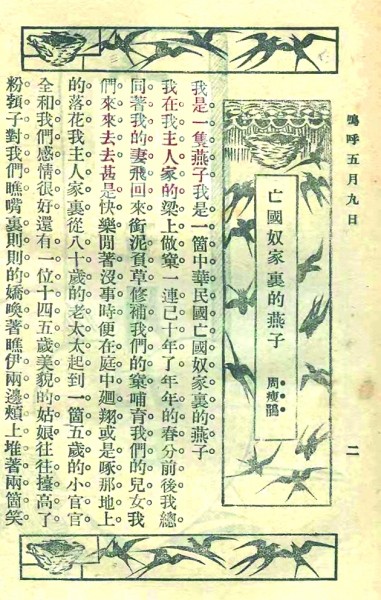 嗚呼五月九日
二
亡國奴家裏的燕子
周瘦鵑
我是一隻燕子我是一箇中華民國亡國奴家裏的燕子
我在我主人家的梁上做窠一連已十年了年年的春分前後我總
同著我的妻飛回來銜泥負草修補我們的窠哺育我們的兒女我
們來來去去甚是快樂閒著沒事時便在庭中廻翔或是啄那地上
的落花我主人家裏從八十歲的老太太起到一箇五歲的小官官
全和我們感情很好還有一位十四五歲美貌的姑娘往往擡高了
粉頸子對我們瞧嘴裏則則的嬌喚著瞧伊兩邊頰上堆著兩箇笑